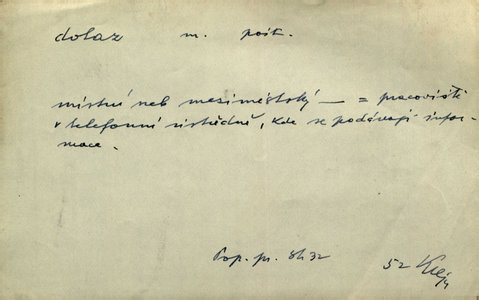 dotaz m. pošt.
místní neb meziměstský — = pracoviště
v telefonní ústředně, kde se podávají infor-
mace.
Pop. pr. 8h32
52